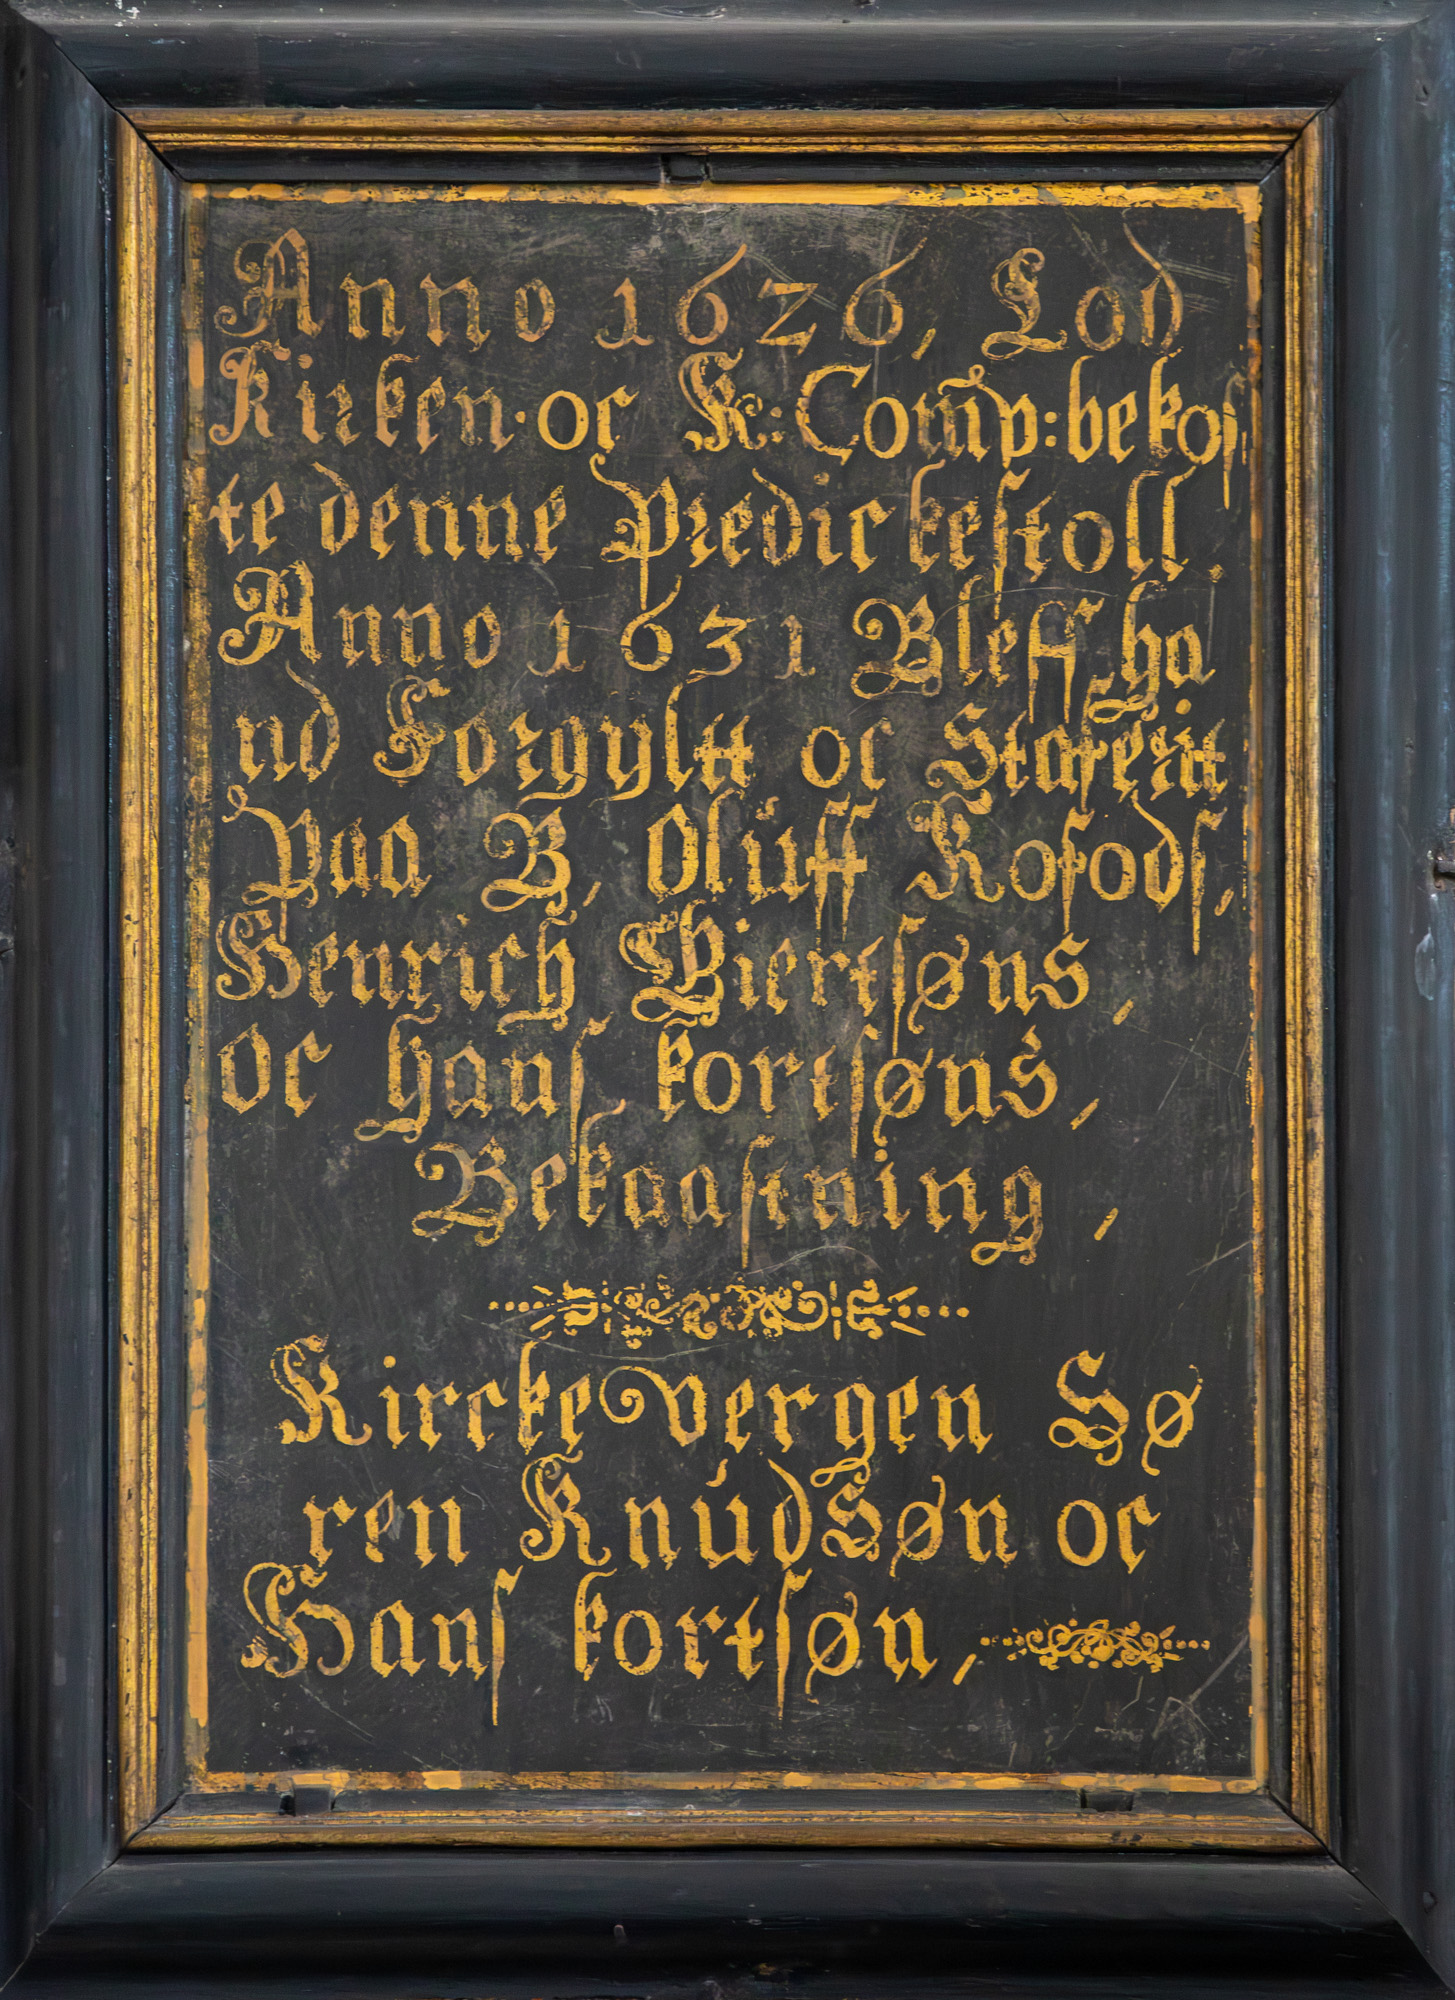 Anno 1626, Lod
Kirken·oc K: Com̃p: bekoſ
te denne Predickeſtoll.
Anno 1631 Bleff ha
nd Forgyltt oc Staferitt
Paa B, Olúff Kofodſ,
Henrich Biertſøns,
oc hanſ kortſøns,
Bekaaſtning,
Kircke vergen Sø
ren KnúdSøn oc
Hanſ kortſøn,